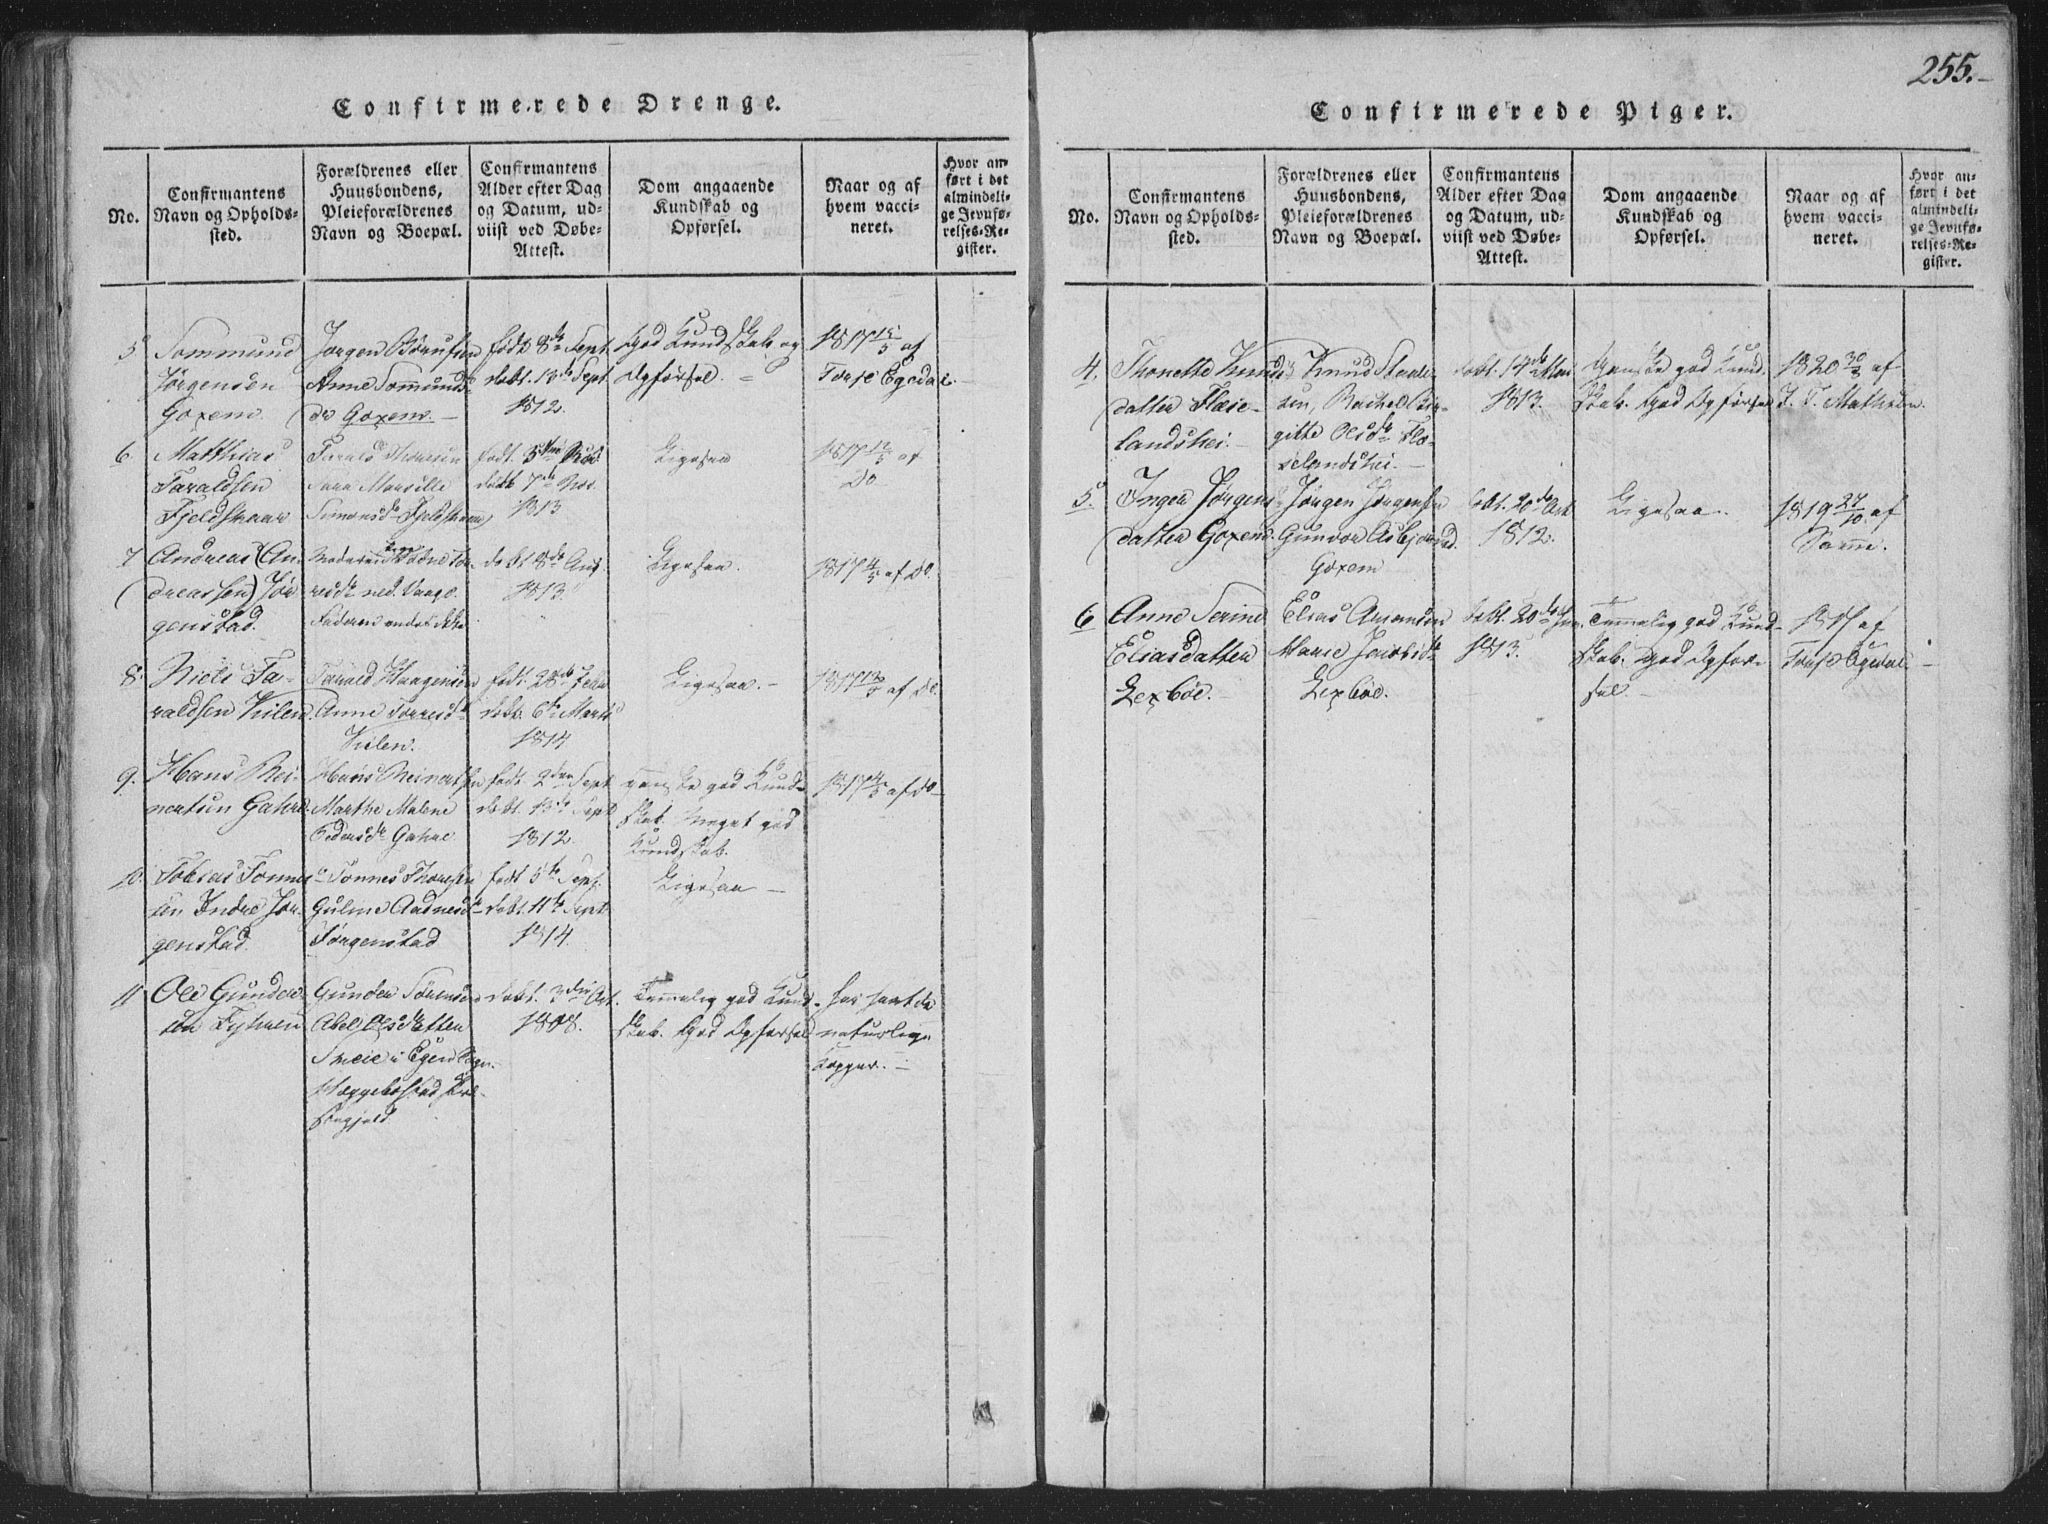 255.
Confirmerede Drenge.
No.
Confirmantens Navn og Opholds-
sted.
Forældrenes eller
Huusbondens,
Pleieforældrenes
Navn og Boepæl.
Confirmantens
Alder efter Dag
og Datum, ud-
viist ved Døbe-
Attest.
Dom angaaende
Kundskab og
Opførsel.
Naar og af
hvem vacci-
neret.
Hvor an-
ført i det
almindeli-
ge Jevnfø-
relses-Re-
gister.
5
Tommund
Jørgensen
Goxem.
Jørgen
Anne Tommunds-
dr Goxem.
født 8de Sept.
døbt. 13de Sept
1812.
God Kundskab og
Opførsel.
1817 15/5 af
Torje Egedal.
6
Matthias
Taraldsen
Fjeldskaar
Tarald
Simonsdr Fjeldskaar
født. Nov.
døbt 7de Nov.
1813
Ligesaa
1817 12/5 af
Do
7
Andreas (An-
dreassen) Jør-
genstad.
Moderen
Faderen
døbt 8de Aug.
1813.
Ligesaa.
1817 4/5 af Do.
8.
Niels Ta-
raldsen Kiilen.
Tarald Haagensen
Anne Torresdr
Kiilen.
født. 28de Febr
døbt. 6te Marts
1814
Ligesaa.
1817 af Do.
9.
Hans Rei-
nertsen Gahre.
Hans Reinertsen
Marthe Malene
Pedersdr Gahre
født. 2den Sept
døbt. 13de Sept
1812.
ganske god Kund-
skab. Meget god
Kundskab.
1817 4/5 af Do
10.
Tobias Tønnes-
sen Indre Jør-
genstad.
Tønnes Thoresen
Guline Aadnesdr
Jørgenstad
født 5te Sept.
døbt. 11te Sept
1814.
Ligesaa
11
Ole Gunder-
sen
Gunder Sørensen
Abel Olsdatter
Sneie i Egen Sogn.
Hæggebostad Præ-
stegjeld.
døbt. 3die Oct.
1808.
Temmelig god Kund-
skab. God Opførsel
har havt de
naturlige
Kopper.
Confirmerede Piger.
No.
Confirmantens
Navn og Opholds-
sted.
Forældrenes eller
Huusbondens,
Pleieforældrenes
Navn og Boepæl.
Confirmantens
Alder efter Dag
og Datum, ud-
viist ved Døbe-
Attest.
Dom angaaende
Kundskab og
Opførsel.
Naar og af
hvem vacci-
neret.
Hvor an-
ført i det
almindeli-
ge Jevnfø-
relses-Re-
gister.
4.
Thonette Knuds-
datter Flæse-
landshei.
Knud
Rachel Bir-
gitte Olsdr Flæ-
selandshei.
døbt. 14de
1813.
Ganske god Kund-
skab. God Opførsel
1820 30/8 af
J. T. Mathsen.
5.
Inger Jørgens-
datter Goxem.
Jørgen Jørgensen
Gunvor Asbjørnsd.
Goxem
døbt. 20de Oct
1812.
Ligesaa.
1819 27/10 af
Samme.
6
Anne Serine
Eliasdatter
Lexbøe.
Elias Amundsen
Marie Jacobsdr
Lexbøe.
døbt. 20de Jan.
1813.
Temmelig god Kund-
skab. God Opfør-
sel
1817 af
Torje Egedal.